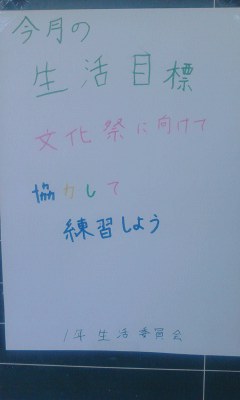 今月の
生活目標
文化祭に向けて
協力して
練習しよう
1年生活委員会